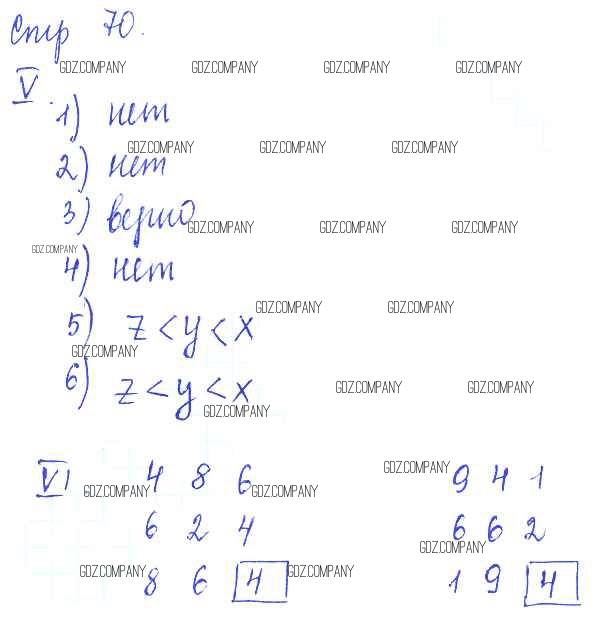 Стр 70.
GDZ.COMPANY GDZ.COMPANY GDZ.COMPANY GDZ.COMPANY
V
1) нет
GDZ.COMPANY GDZ.COMPANY GDZ.COMPANY
2) нет
3) верно
GDZ.COMPANY GDZ.COMPANY GDZ.COMPANY
GDZ.COMPANY
4) нет
GDZ.COMPANY GDZ.COMPANY
5) z < y < x
GDZ.COMPANY
6) z < y < x
GDZ.COMPANY GDZ.COMPANY
GDZ.COMPANY
VI 4 8 6 9 4 1
GDZ.COMPANY GDZ.COMPANY GDZ.COMPANY
6 2 4 6 6 2
GDZ.COMPANY
8 6 4 1 9 4
GDZ.COMPANY GDZ.COMPANY